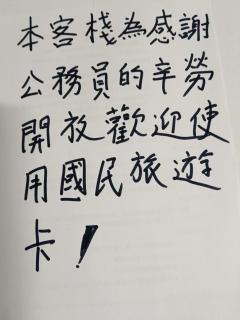 本客棧為感謝
公務員的辛勞
開放歡迎使
用國民旅遊
卡！